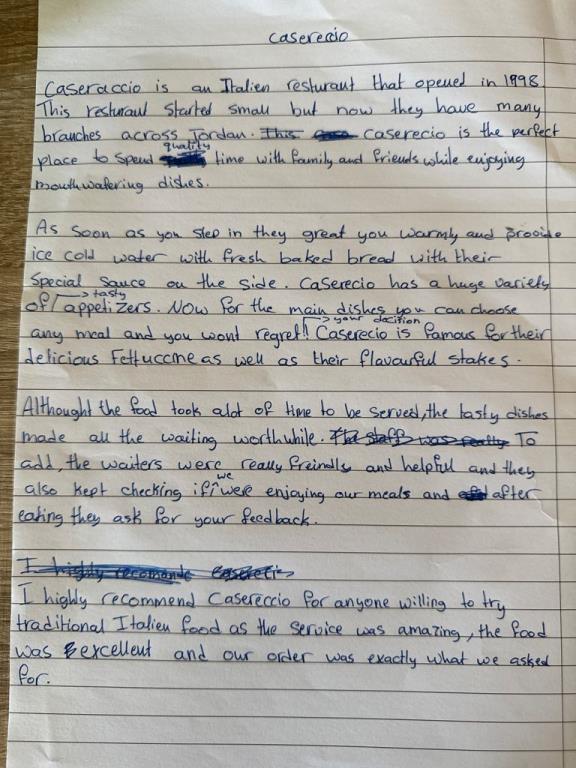 Caserecio
Caseraccio is an Italien resturant that opened in 1998.
This resturant started small but now they have many
branches across Jordan. This Caserecio is the perfect
place to spend quality time with family and friends while enjoying
mouthwatering dishes.
As soon as you step in they great you warmly and provide
ice cold water with fresh baked bread with their
special sauce on the side. Caserecio has a huge variety
of tasty appetizers. Now for the main dishes you can choose
any meal and you wont regret your decition!! Caserecio is famous for their
delicious Fettuccine as well as their flavourful stakes.
Althought the food took alot of time to be served, the tasty dishes
made all the waiting worthwhile. The staff was really To
add, the waiters were really freindly and helpful and they
also kept checking if we were enjoying our meals and after
eating they ask for your feedback.
I highly recomende caserecio
I highly recommend Casereccio for anyone willing to try
traditional Italien food as the service was amazing, the food
was excellent and our order was exactly what we asked
for.